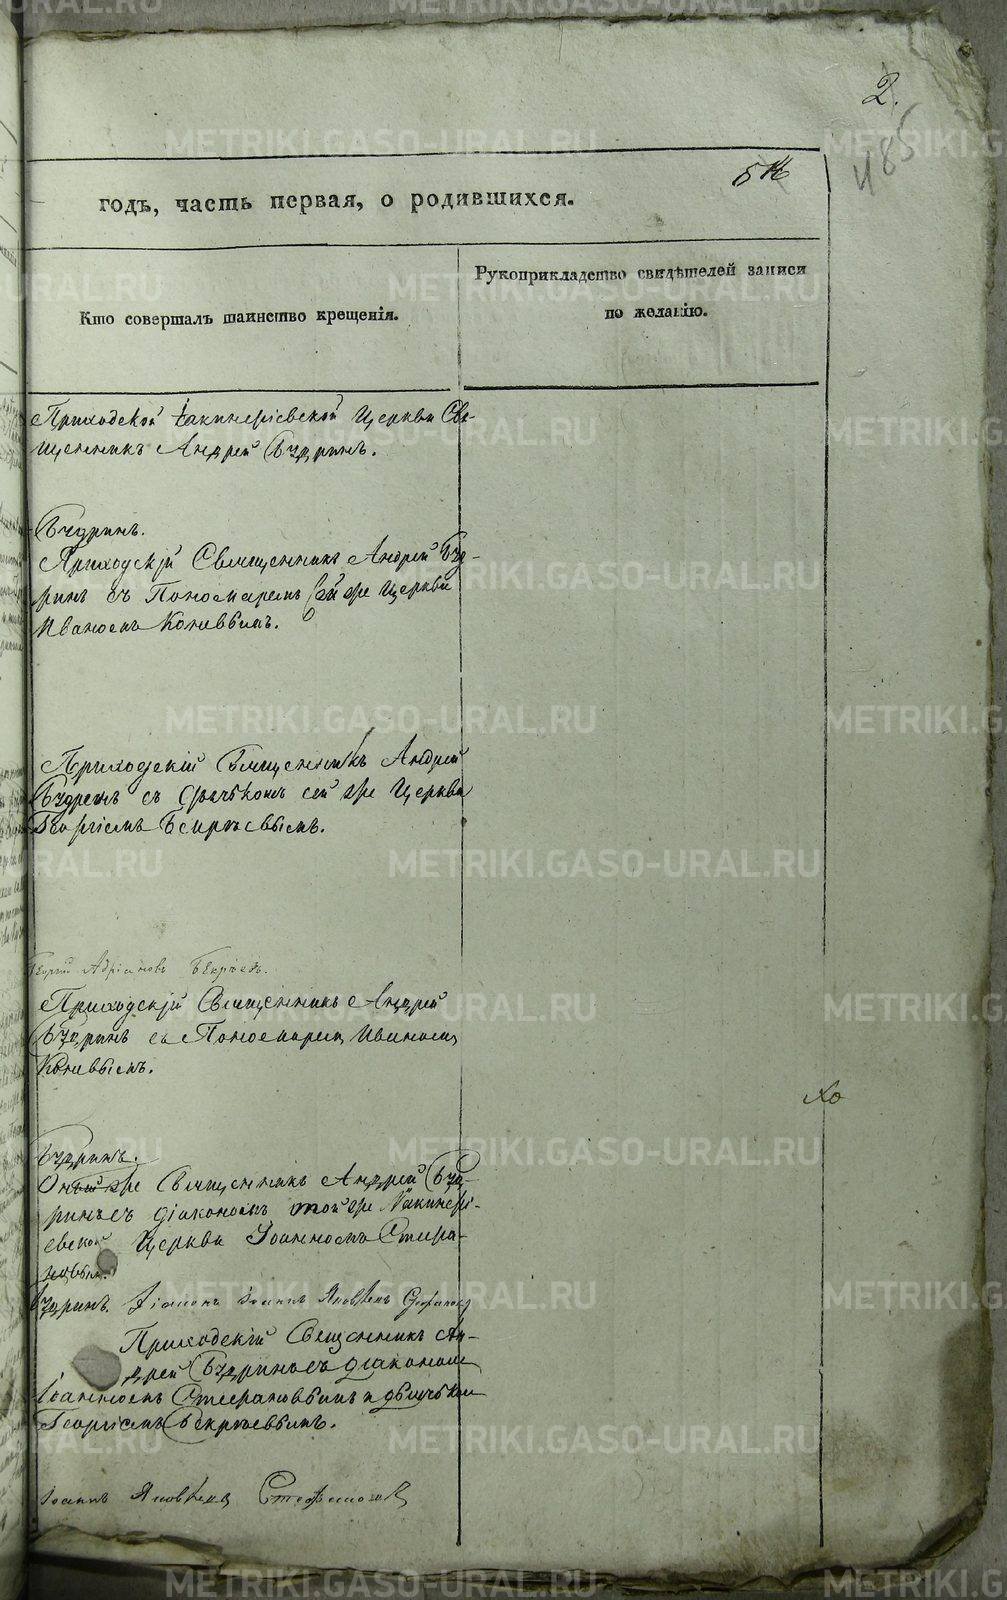 2.
485
годъ, часть первая, о родившихся.
Кто совершалъ таинство крещенія.
Рукоприкладство свидѣтелей записи
по желанію.
Приходской Iакинѳіевской Церкви Свя-
щенникъ Андрей Бѣдринъ.
Приходскій Священникъ Андрей
съ Пономаремъ сей же Церкви
Иваномъ Коневымъ.
Приходскій Священникъ Андрей
съ Дьячкомъ сей же Церкви
Георгіемъ Бекрѣевымъ.
Георгій Адріановъ Бекрѣевъ.
Приходскій Священникъ Андрей
съ Пономаремъ Иваномъ
Коневымъ.
же Священникъ Андрей
съ діакономъ той же Iакинѳі-
евской Церкви Іоанномъ Стефа-
новым.
Діаконъ Іоаннъ Яковлевъ Стефановъ
Приходскій Священникъ Ан-
дрей съ діакономъ
Іоанномъ Стефановымъ и дьячкомъ
Георгіемъ Бекрѣевымъ.
Іоаннъ Яковлевъ Стефановъ
METRIKI.GASO-URAL.RU